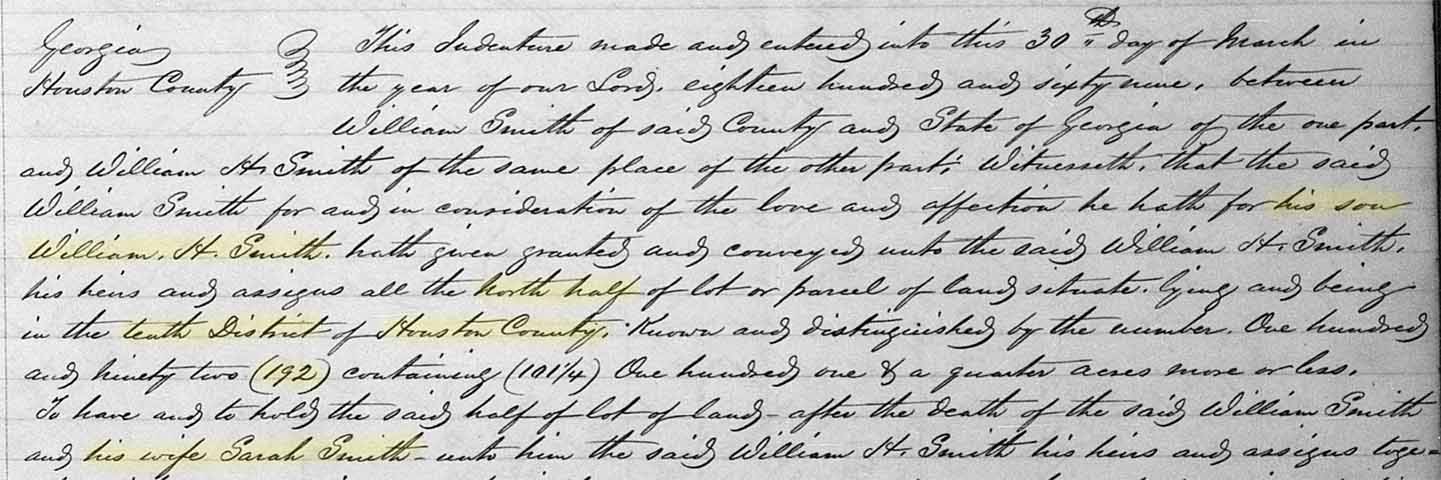 Georgia This Indenture made and entered into this 30th day of March in
Houston County the year of our Lord, eighteen hundred and sixty nine, between
William Smith of said County and State of Georgia of the one part,
and William H. Smith of the same place of the other part; Witnesseth, that the said
William Smith for and in consideration of the love and affection he hath for his son
William. H. Smith. hath given granted and conveyed unto the said William H. Smith,
his heirs and assigns all the north half of lot or parcel of land situate. lying and being
in the tenth District of Houston County. Known and distinguished by the number. One hundred
and ninety two (192) containing (101 1/4) One hundred one & a quarter acres more or less.
To have and to hold the said half of lot of land - after the death of the said William Smith
and his wife Sarah Smith - unto him the said William H. Smith his heirs and assigns toge=